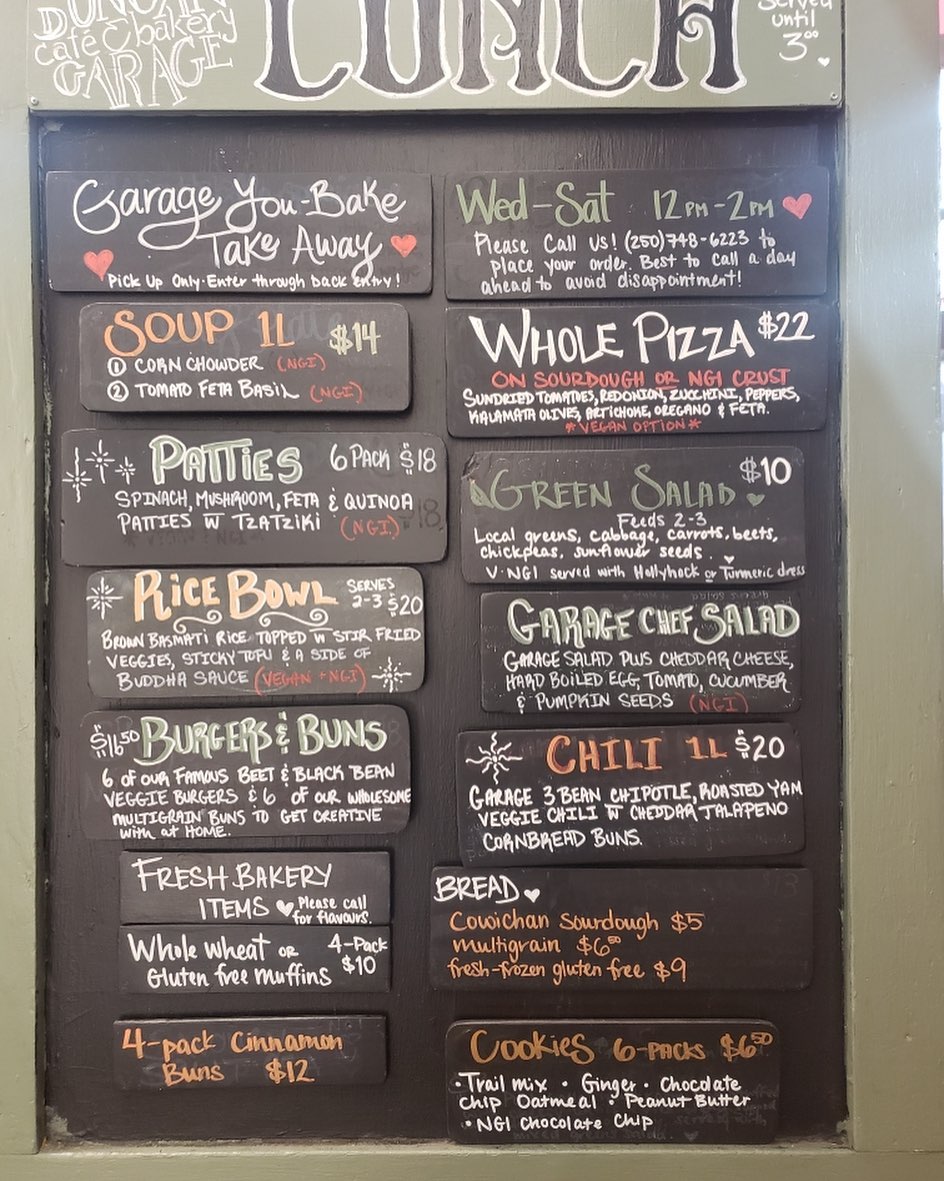 DUNCAN
café & bakery
GARAGE
LUNCH
served
until
3⁰⁰
Garage You-Bake
Take Away
Pick Up Only·Enter through back entry!
SOUP 1L $14
① CORN CHOWDER (NGI)
② TOMATO FETA BASIL (NGI)
PATTIES 6 PACK $18
SPINACH, MUSHROOM, FETA & QUINOA
PATTIES W TZATZIKI (NGI)
RICE BOWL SERVES 2-3 $20
BROWN BASMATI RICE TOPPED W STIR FRIED
VEGGIES, STICKY TOFU & A SIDE OF
BUDDHA SAUCE (VEGAN + NGI)
$16⁵⁰ BURGERS & BUNS
6 OF OUR FAMOUS BEET & BLACK BEAN
VEGGIE BURGERS & 6 OF OUR WHOLESOME
MULTIGRAIN BUNS TO GET CREATIVE
with at HOME.
FRESH BAKERY
ITEMS Please call
for flavours.
Whole wheat or 4-Pack
Gluten free muffins $10
4-pack Cinnamon
Buns $12
Wed-Sat 12PM-2PM
Please Call Us! (250)748-6223 to
place your order. Best to call a day
ahead to avoid disappointment!
WHOLE PIZZA $22
ON SOURDOUGH OR NGI CRUST
SUNDRIED TOMATOES, REDONION, ZUCCHINI, PEPPERS,
KALAMATA OLIVES, ARTICHOKE, OREGANO & FETA.
*VEGAN OPTION*
GREEN SALAD $10
Feeds 2-3
Local greens, cabbage, carrots, beets,
chickpeas, sunflower seeds.
V·NGI served with Hollyhock or Turmeric dress
GARAGE CHEF SALAD
GARAGE SALAD PLUS CHEDDAR CHEESE,
HARD BOILED EGG, TOMATO, CUCUMBER
& PUMPKIN SEEDS (NGI)
CHILI 1L $20
GARAGE 3 BEAN CHIPOTLE, ROASTED YAM
VEGGIE CHILI W CHEDDAR JALAPENO
CORNBREAD BUNS.
BREAD
Cowichan Sourdough $5
multigrain $6⁵⁰
fresh-frozen gluten free $9
COOKIES 6-PACKS $6⁵⁰
·Trail mix · Ginger · Chocolate
chip Oatmeal · Peanut Butter
· NGI Chocolate Chip